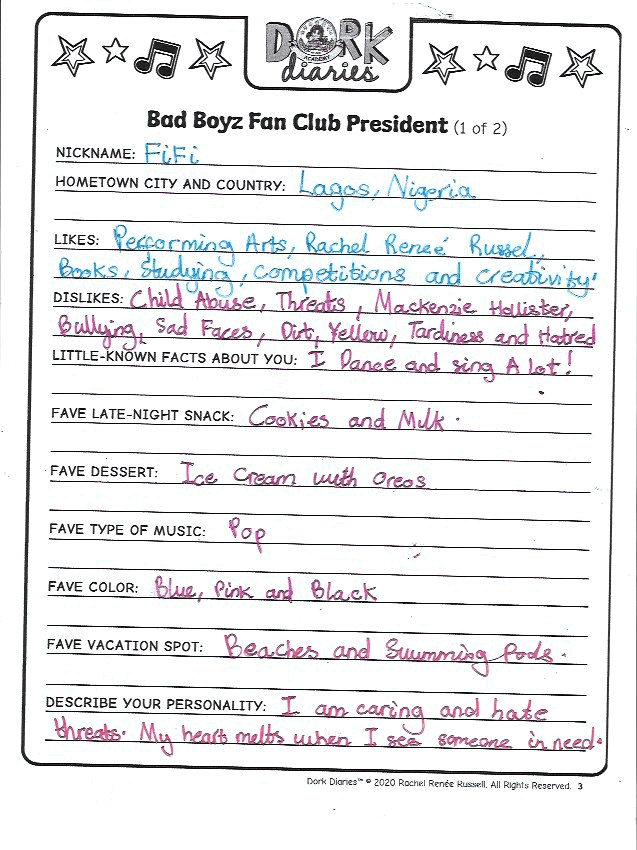 DORK
ACADEMY
diaries
Bad Boyz Fan Club President (1 of 2)
NICKNAME: FiFi
HOMETOWN CITY AND COUNTRY: Lagos, Nigeria
LIKES: Performing Arts, Rachel Reneé Russel,
Books, Studying, competitions and creativity.
DISLIKES: Child Abuse, Threats, Mackenzie Hollister,
Bullying, Sad Faces, Dirt, Yellow, Tardiness and Hatred
LITTLE-KNOWN FACTS ABOUT YOU: I Dance and sing A lot!
FAVE LATE-NIGHT SNACK: Cookies and Milk.
FAVE DESSERT: Ice Cream with Oreos
FAVE TYPE OF MUSIC: Pop
FAVE COLOR: Blue, Pink and Black
FAVE VACATION SPOT: Beaches and Swimming Pools.
DESCRIBE YOUR PERSONALITY: I am caring and hate
threats. My heart melts when I see someone in need.
Dork Diaries™ © 2020 Rachel Renée Russell. All Rights Reserved. 3